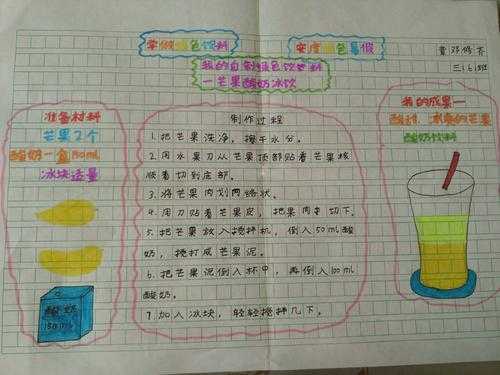 掌做绿色饮料
安度绿色暑假
章邓修齐
三(6)班
我的自制绿色饮料
—芒果酸奶冰饮
准备材料
芒果2个
酸奶一盒150ml
冰块适量
酸奶
150ml
制作过程
1.把芒果洗净,擦干水分。
2.用水果刀从芒果顶部贴着芒果核
顺着切到底部。
3.将芒果肉划网络状。
4.用刀贴着芒果皮,把果肉切下。
5.把芒果放入搅拌机,倒入50ml酸
奶,搅打成芒果泥。
6.把芒果泥倒入杯中,再倒入100ml
酸奶。
7.加入冰块,轻轻搅拌几下。
我的成果—
酸甜、冰爽的芒果
酸奶饮料